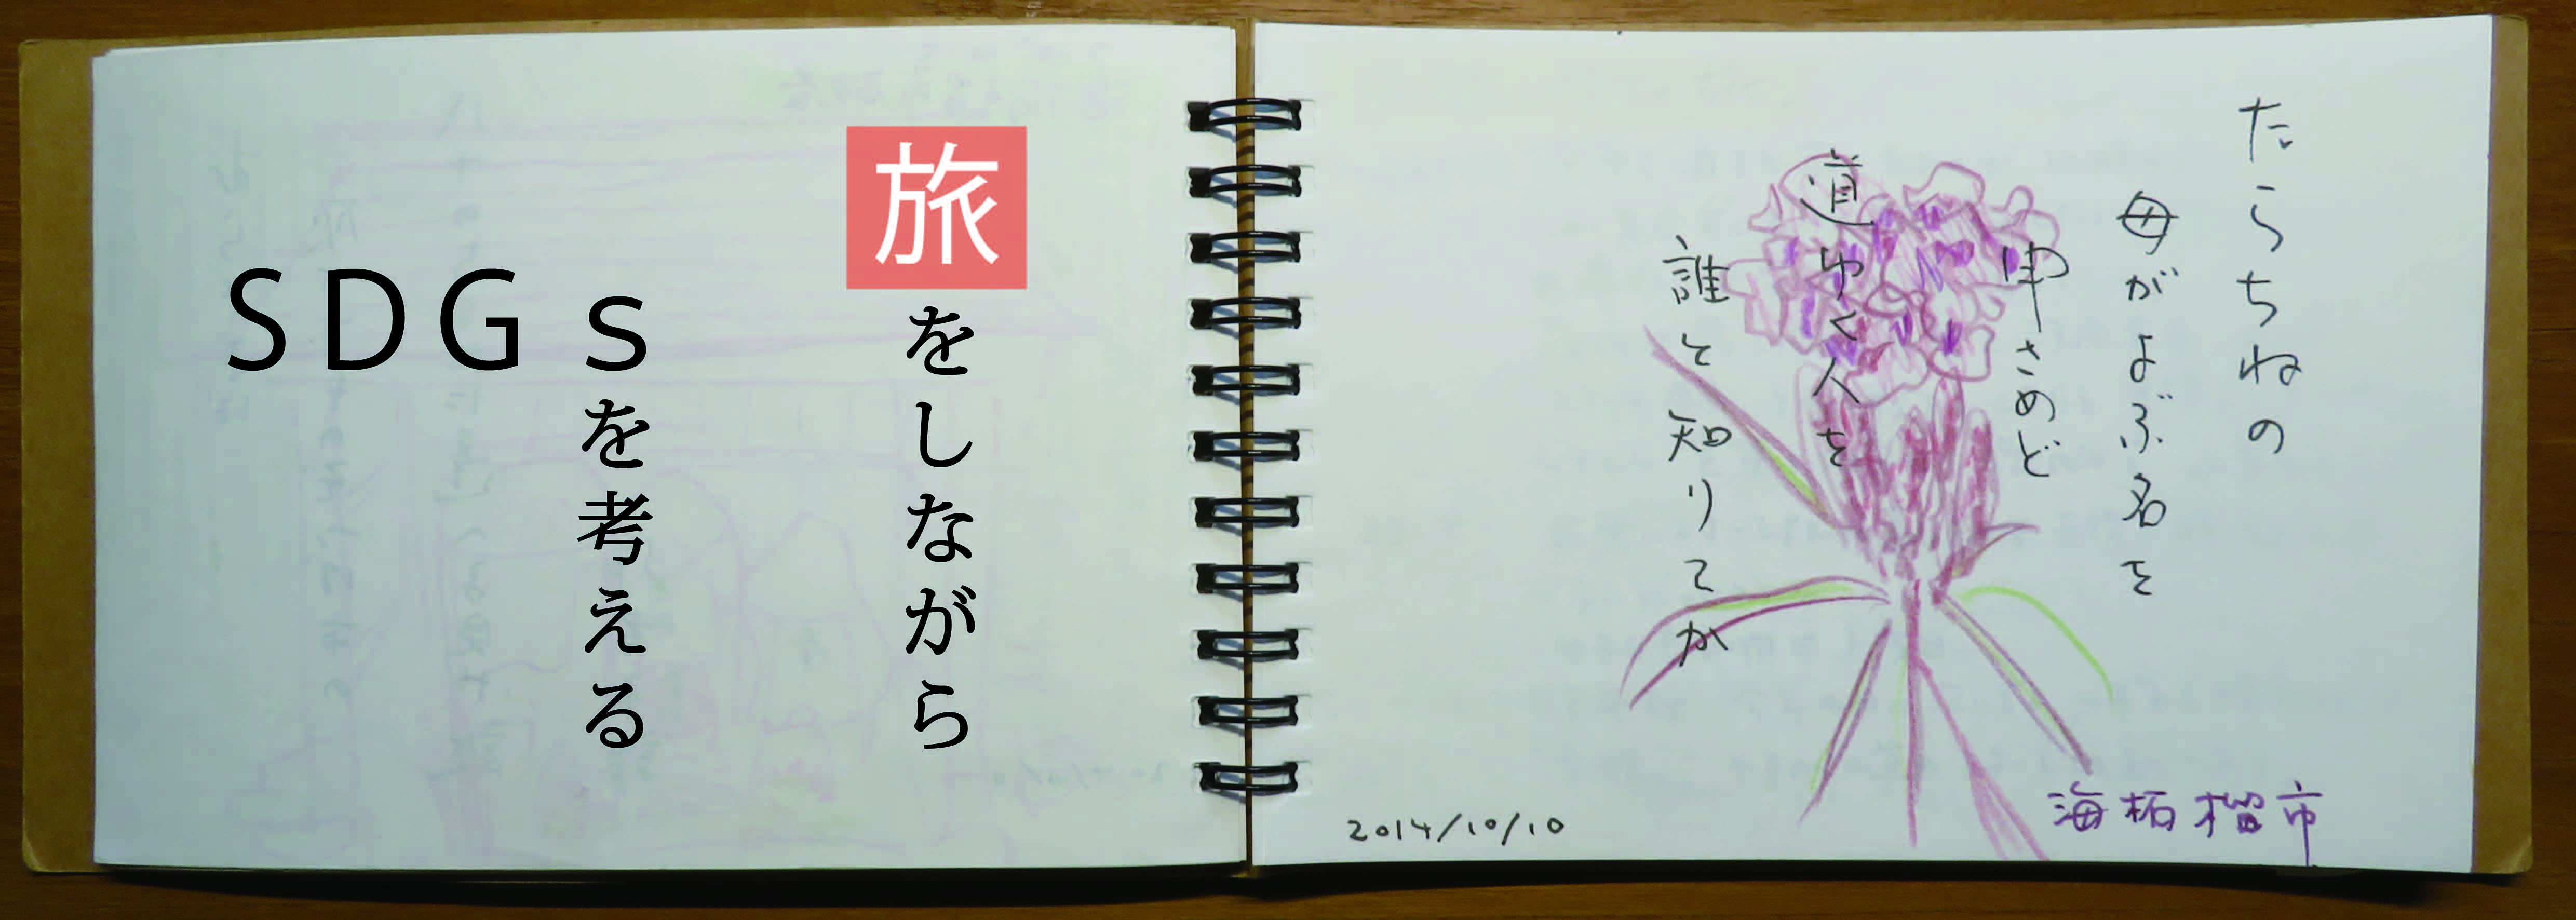 旅をしながら
SDGsを考える
たらちねの
母がよぶ名を
申さめど
道ゆく人を
誰と知りてか
海柘榴市
2014/10/10